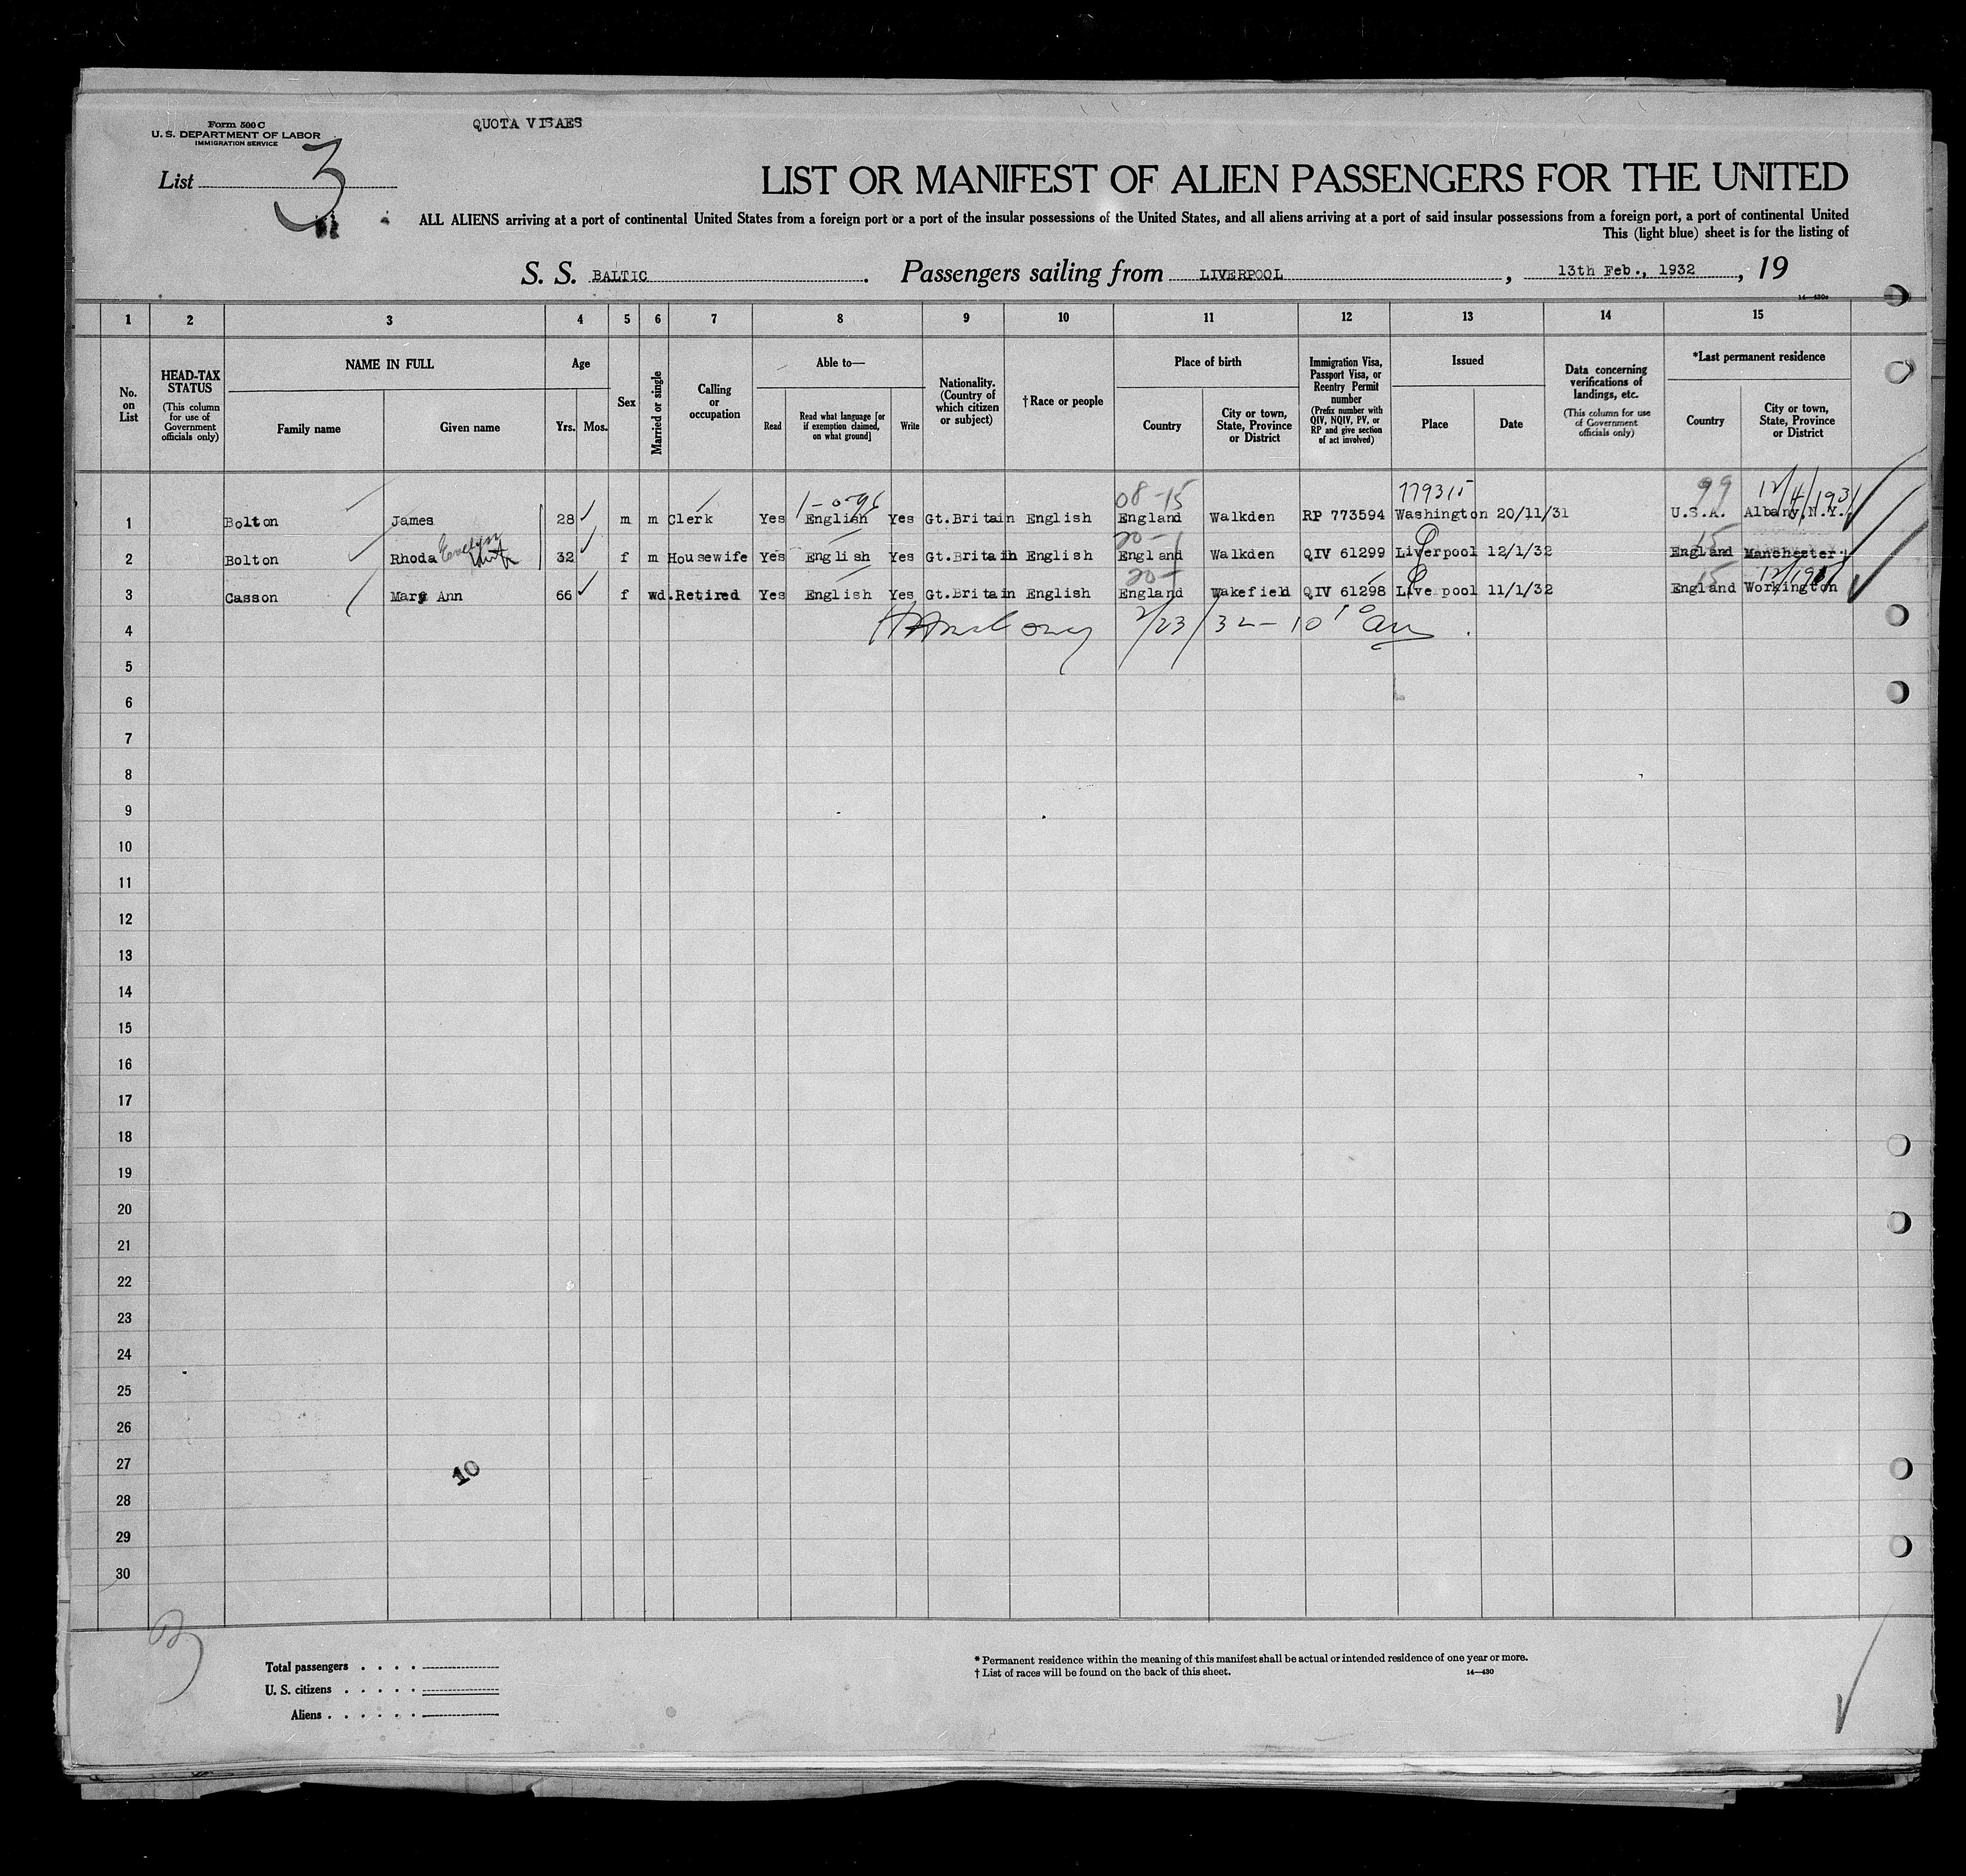 Form 500 C
U. S. DEPARTMENT OF LABOR
IMMIGRATION SERVICE
QUOTA VISAES
List 3
LIST OR MANIFEST OF ALIEN PASSENGERS FOR THE UNITED
ALL ALIENS arriving at a port of continental United States from a foreign port or a port of the insular possessions of the United States, and all aliens arriving at a port of said insular possessions from a foreign port, a port of continental United
This (light blue) sheet is for the listing of
S. S. BALTIC . Passengers sailing from LIVERPOOL , 13th Feb., 1932 , 19
14—430a
1 2 3 4 5 6 7 8 9 10 11 12 13 14 15
No. on List
HEAD-TAX STATUS (This column for use of Government officials only)
NAME IN FULL
Family name Given name
Age
Yrs. Mos.
Sex
Married or single
Calling or occupation
Able to—
Read Read what language [or if exemption claimed, on what ground] Write
Nationality. (Country of which citizen or subject)
†Race or people
Place of birth
Country City or town, State, Province or District
Immigration Visa, Passport Visa, or Reentry Permit number (Prefix number with QIV, NQIV, PV, or RP and give section of act involved)
Issued
Place Date
Data concerning verifications of landings, etc. (This column for use of Government officials only)
*Last permanent residence
Country City or town, State, Province or District
08-15 779315 99 12/4/1931
1 Bolton James 28 m m Clerk Yes English Yes Gt.Britain English England Walkden RP 773594 Washington 20/11/31 U.S.A. Albany,N.Y.
20- 15
2 Bolton Rhoda Evelyn 32 f m Housewife Yes English Yes Gt.Britain English England Walkden QIV 61299 Liverpool 12/1/32 England Manchester
20- 15
3 Casson Mary Ann 66 f wd. Retired Yes English Yes Gt.Britain English England Wakefield QIV 61298 Live pool 11/1/32 England Workington
4 2/23/32 - 10 am
5
6
7
8
9
10
11
12
13
14
15
16
17
18
19
20
21
22
23
24
25
26
27
28
29
30
10
Total passengers . . . .
U. S. citizens . . . . .
Aliens . . . . . .
* Permanent residence within the meaning of this manifest shall be actual or intended residence of one year or more.
† List of races will be found on the back of this sheet. 14—430